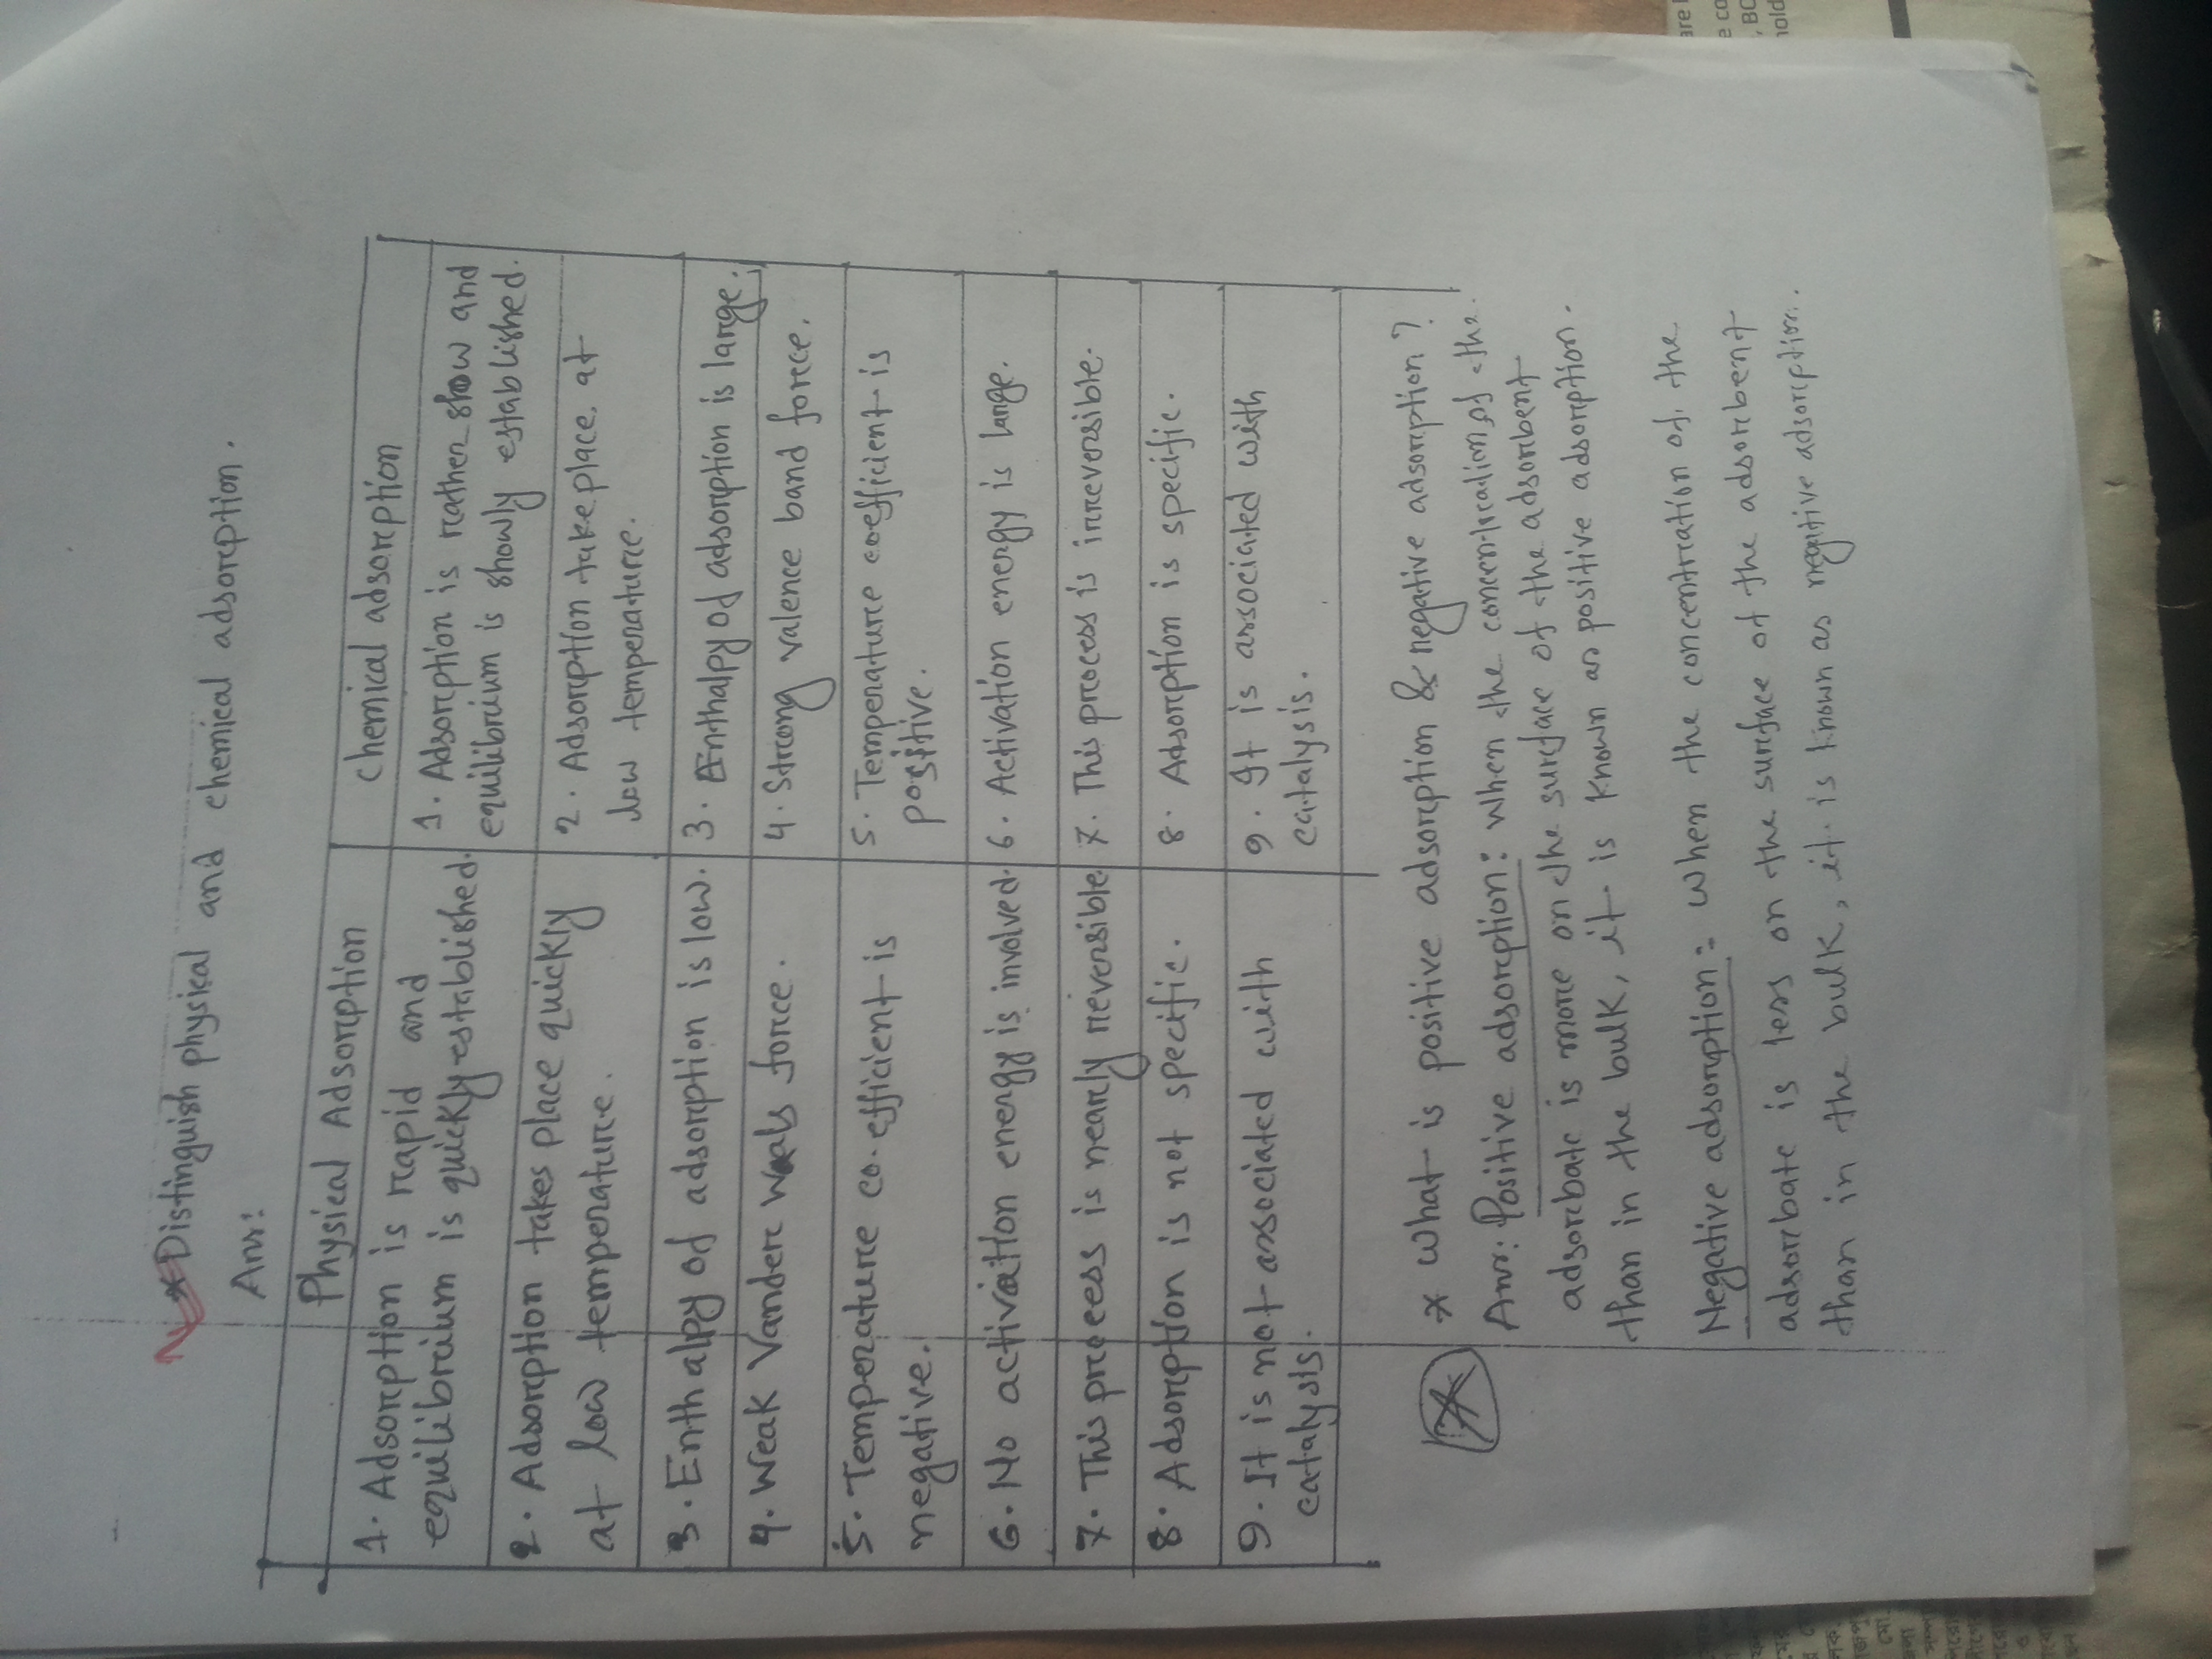 * Distinguish physical and chemical adsorption.
Ans:
Physical Adsorption
Chemical adsorption
1. Adsorption is rapid and
equilibrium is quickly established.
1. Adsorption is rather show and
equilibrium is showly established.
2. Adsorption takes place quickly
at low temperature.
2. Adsorption take place at
low temperature.
3. Enthalpy of adsorption is low.
3. Enthalpy of adsorption is large.
4. Weak Vander Wals force.
4. Strong valence band force.
5. Temperature co.efficient is
negative.
5. Temperature coefficient is
positive.
6. No activation energy is involved.
6. Activation energy is large.
7. This process is nearly reversible.
7. This process is irreversible.
8. Adsorption is not specific.
8. Adsorption is specific.
9. It is not associated with
catalysis.
9. It is associated with
catalysis.
* What is positive adsorption & negative adsorption?
Ans: Positive adsorption: when the concentration of the
adsorbate is more on the surface of the adsorbent
than in the bulk, it is known as positive adsorption.
Negative adsorption: when the concentration of the
adsorbate is less on the surface of the adsorbent
than in the bulk, it is known as negative adsorption.